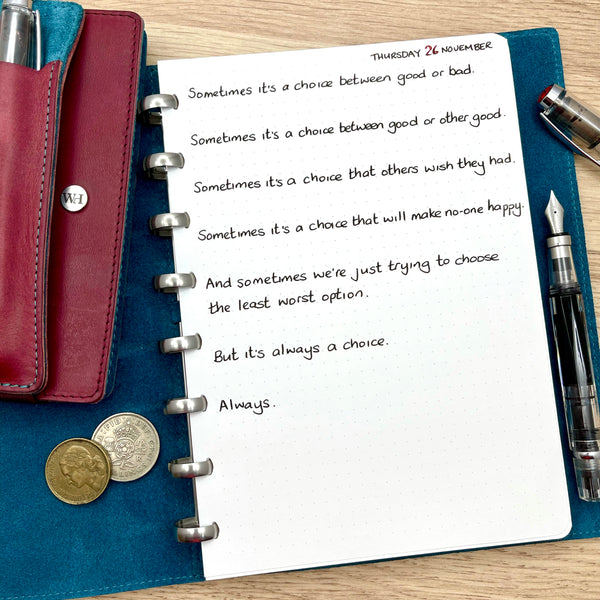 THURSDAY 26 NOVEMBER
Sometimes it's a choice between good or bad.
Sometimes it's a choice between good or other good.
Sometimes it's a choice that others wish they had.
Sometimes it's a choice that will make no-one happy.
And sometimes we're just trying to choose
the least worst option.
But it's always a choice.
Always.
WH